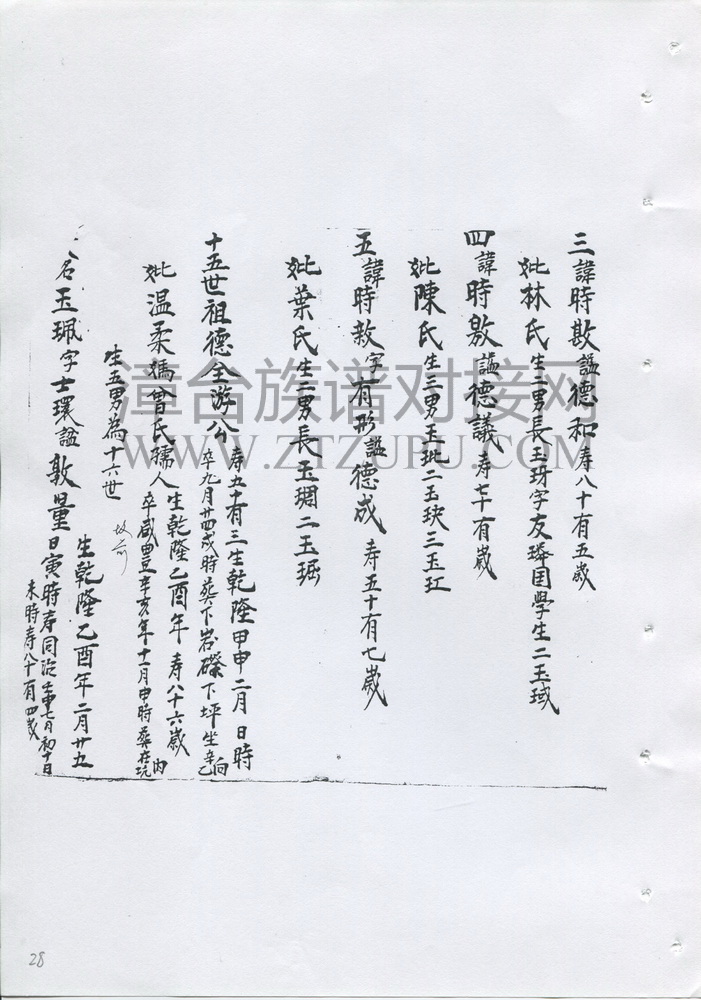 三諱時敡諡德和寿八十有五歲
妣林氏生二男長玉玡字友璘国學生二玉珹
四諱時敫諡德議寿七十有歲
妣陳氏生三男玉玭二玉玦三玉玒
五諱時敖字有形諡德成寿五十有七歲
妣葉氏生二男長玉琱二玉琚
十五世祖德全游公寿五十有三生乾隆甲申二月日時
卒九月廿四戌時葬下岩磜下坪坐辛乙向
妣温柔媽曾氏孺人生乾隆乙酉年寿八十六歲
卒咸豊辛亥年十一月申時葬在坑内
生五男為十六世
故前
名玉珮字士環諡敦量生乾隆乙酉年二月廿五
日寅時寿同治七月初十日
未時寿八十有四歲
漳台族谱对接网
WWW.ZTZUPU.COM
28